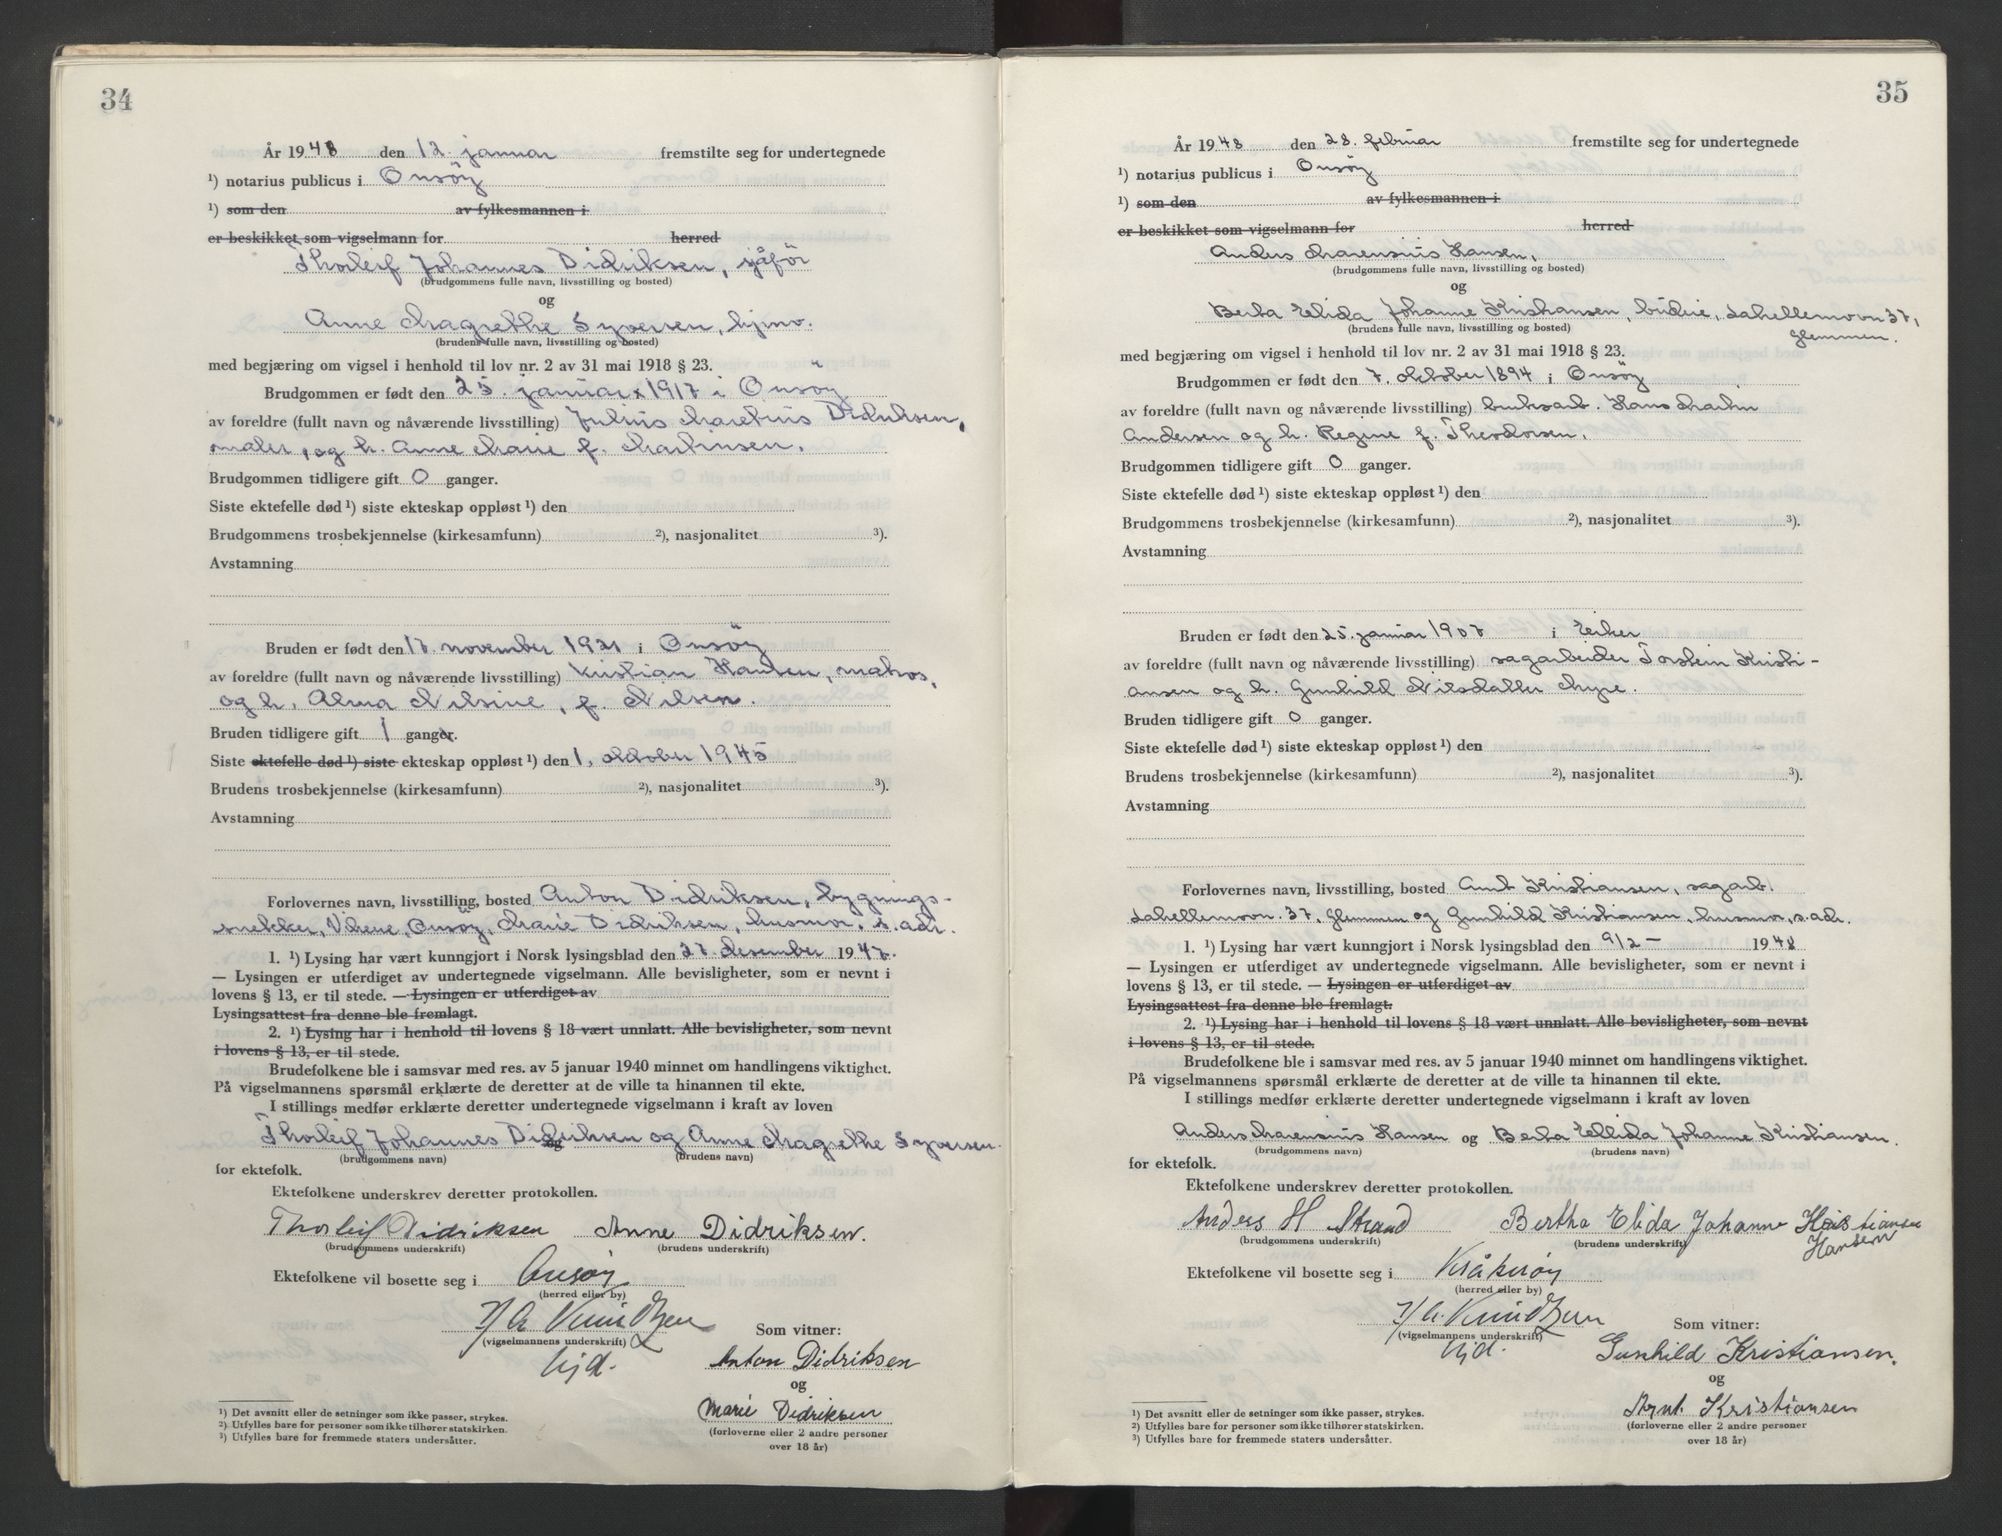 34
År 1948 den 12. januar fremstilte seg for undertegnede
¹) notarius publicus i Onsöy
¹) som den av fylkesmannen i
er beskikket som vigselmann for herred
Thorleif Johannes Didriksen, sjåför
(brudgommens fulle navn, livsstilling og bosted)
og
Anne Magrethe Syversen, hjmv.
(brudens fulle navn, livsstilling og bosted)
med begjæring om vigsel i henhold til lov nr. 2 av 31 mai 1918 § 23.
Brudgommen er født den 25. januar 1917 i Onsöy
av foreldre (fullt navn og nåværende livsstilling) Julius Marthius Didriksen,
maler, og h. Anne Marie f. Martinsen.
Brudgommen tidligere gift 0 ganger.
Siste ektefelle død¹) siste ekteskap oppløst¹) den
Brudgommens trosbekjennelse (kirkesamfunn) ²), nasjonalitet ³).
Avstamning
Bruden er født den 17. november 1921 i Onsöy
av foreldre (fullt navn og nåværende livsstilling) Kristian Hansen, matros,
og h. Alma Nilsine, f. Nilsen.
Bruden tidligere gift 1 ganger.
Siste ektefelle død¹) siste ekteskap oppløst¹) den 1. oktober 1945
Brudens trosbekjennelse (kirkesamfunn) ²), nasjonalitet ³).
Avstamning
Forlovernes navn, livsstilling, bosted Anton Didriksen, bygnings-
snekker, Vikene, Onsöy, Marie Didriksen, husmor, s. adr.
1. ¹) Lysing har vært kunngjort i Norsk lysingsblad den 27. desember 1947.
— Lysingen er utferdiget av undertegnede vigselmann. Alle bevisligheter, som er nevnt i
lovens § 13, er til stede. — Lysingen er utferdiget av
Lysingsattest fra denne ble fremlagt.
2. ¹) Lysing har i henhold til lovens § 18 vært unnlatt. Alle bevisligheter, som nevnt
i lovens § 13, er til stede.
Brudefolkene ble i samsvar med res. av 5 januar 1940 minnet om handlingens viktighet.
På vigselmannens spørsmål erklærte de deretter at de ville ta hinannen til ekte.
I stillings medfør erklærte deretter undertegnede vigselmann i kraft av loven
Thorleif Johannes Didriksen og Anne Magrethe Syversen
(brudgommens navn) (brudens navn)
for ektefolk.
Ektefolkene underskrev deretter protokollen.
Thorleif Didriksen Anne Didriksen.
(brudgommens underskrift) (brudens underskrift)
Ektefolkene vil bosette seg i Onsøy
(herred eller by)
(vigselmannens underskrift) Som vitner:
Anton Didriksen
og
Marie Didriksen
(forloverne eller 2 andre personer
over 18 år)
¹) Det avsnitt eller de setninger som ikke passer, strykes.
²) Utfylles bare for personer som ikke tilhører statskirken.
³) Utfylles bare for fremmede staters undersåtter.
35
År 1948 den 28. februar fremstilte seg for undertegnede
¹) notarius publicus i Onsöy
¹) som den av fylkesmannen i
er beskikket som vigselmann for herred
Anders Marensius Hansen,
(brudgommens fulle navn, livsstilling og bosted)
og
Berta Elida Johanne Kristiansen, budeie, Lahellemovn 37,
Glemmen.
(brudens fulle navn, livsstilling og bosted)
med begjæring om vigsel i henhold til lov nr. 2 av 31 mai 1918 § 23.
Brudgommen er født den 7. oktober 1894 i Onsöy
av foreldre (fullt navn og nåværende livsstilling) bruksarb. Hans Martin
Andersen og h. Regine f. Theodorsen.
Brudgommen tidligere gift 0 ganger.
Siste ektefelle død¹) siste ekteskap oppløst¹) den
Brudgommens trosbekjennelse (kirkesamfunn) ²), nasjonalitet ³).
Avstamning
Bruden er født den 25. januar 1907 i Eiker
av foreldre (fullt navn og nåværende livsstilling) sagarbeider Torstein Kristi-
ansen og h. Gunhild Nilsdatter Myre.
Bruden tidligere gift 0 ganger.
Siste ektefelle død¹) siste ekteskap oppløst¹) den
Brudens trosbekjennelse (kirkesamfunn) ²), nasjonalitet ³).
Avstamning
Forlovernes navn, livsstilling, bosted Arnt Kristiansen, sagarb.
Lahellemovn. 37, Glemmen og Gunhild Kristiansen, husmor, s. adr.
1. ¹) Lysing har vært kunngjort i Norsk lysingsblad den 9/2 — 1948
— Lysingen er utferdiget av undertegnede vigselmann. Alle bevisligheter, som er nevnt i
lovens § 13, er til stede. — Lysingen er utferdiget av
Lysingsattest fra denne ble fremlagt.
2. ¹) Lysing har i henhold til lovens § 18 vært unnlatt. Alle bevisligheter, som nevnt
i lovens § 13, er til stede.
Brudefolkene ble i samsvar med res. av 5 januar 1940 minnet om handlingens viktighet.
På vigselmannens spørsmål erklærte de deretter at de ville ta hinannen til ekte.
I stillings medfør erklærte deretter undertegnede vigselmann i kraft av loven
Anders Marensius Hansen og Berta Ellida Johanne Kristiansen.
(brudgommens navn) (brudens navn)
for ektefolk.
Ektefolkene underskrev deretter protokollen.
Anders H Strand Bertha Elida Johanne Kristiansen
Hansen
(brudgommens underskrift) (brudens underskrift)
Ektefolkene vil bosette seg i Kråkerøy
(herred eller by)
(vigselmannens underskrift) Som vitner:
Gunhild Kristiansen.
og
Arnt Kristiansen
(forloverne eller 2 andre personer
over 18 år)
¹) Det avsnitt eller de setninger som ikke passer, strykes.
²) Utfylles bare for personer som ikke tilhører statskirken.
³) Utfylles bare for fremmede staters undersåtter.